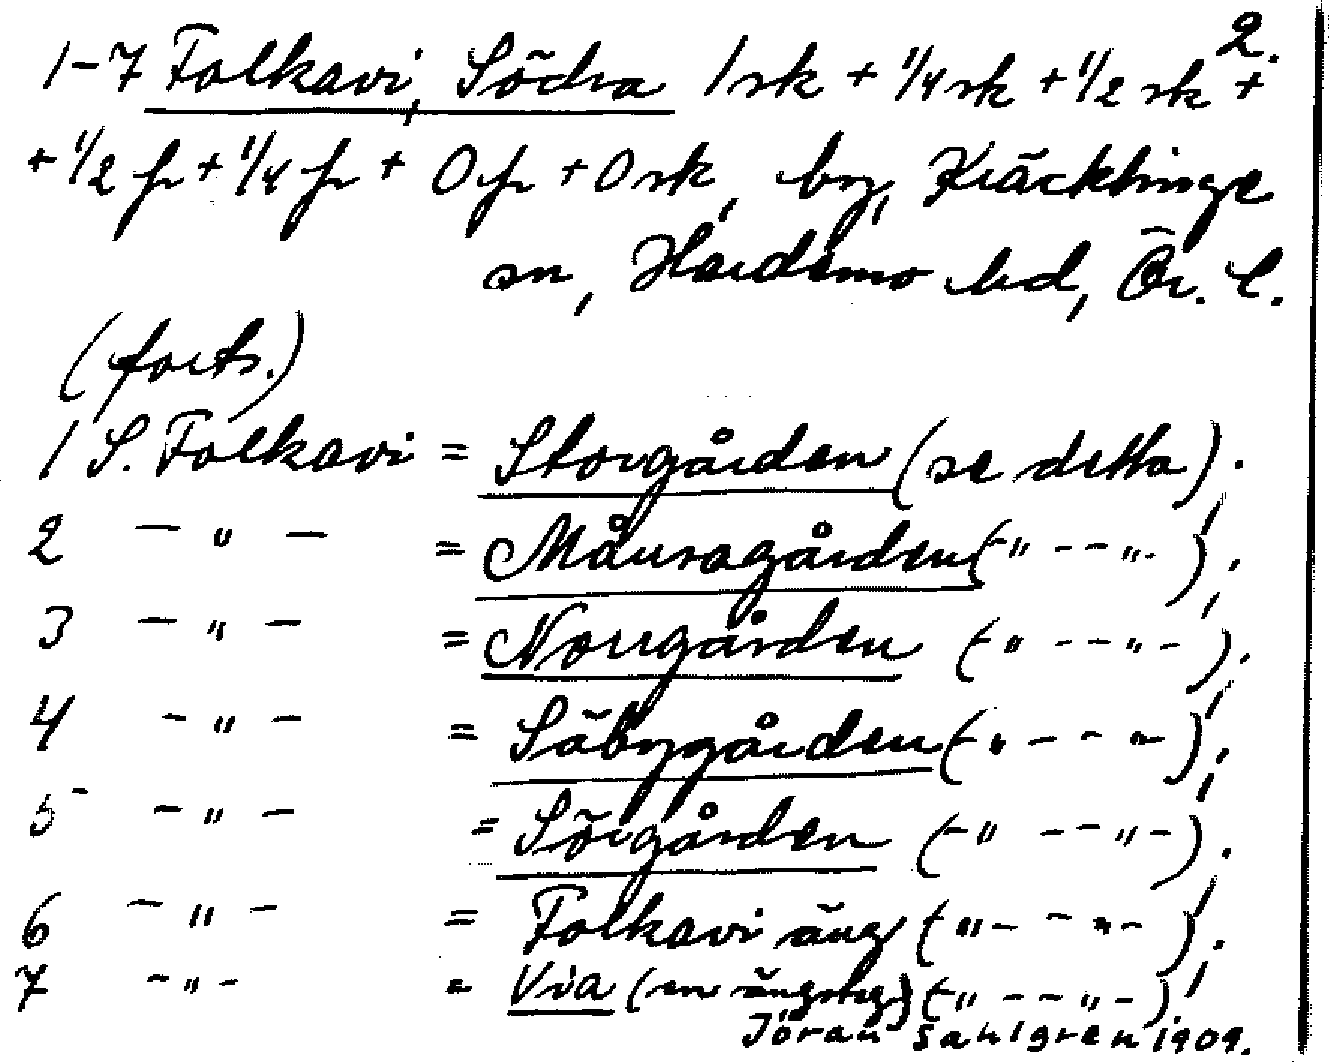 2.
1-7 Folkavi, Södra 1 sk + 1/4 sk + 1/2 sk +
+ 1/2 fr + 1/4 fr + 0 fr + 0 sk, by, Kräcklinge
sn, Hardemo hd, Ör. l.
(forts.)
1 S. Folkavi = Storgården (se detta);
2 - " - = Månsagården (- " - - " - );
3 - " - = Norrgården (- " - - " - );
4 - " - = Säbygården (- " - - " - );
5 - " - = Sörgården (- " - - " - );
6 - " - = Folkavi äng (- " - - " - );
7 - " - = Via (en ängsteg) (- " - - " - ).
Jöran Sahlgren 1909.